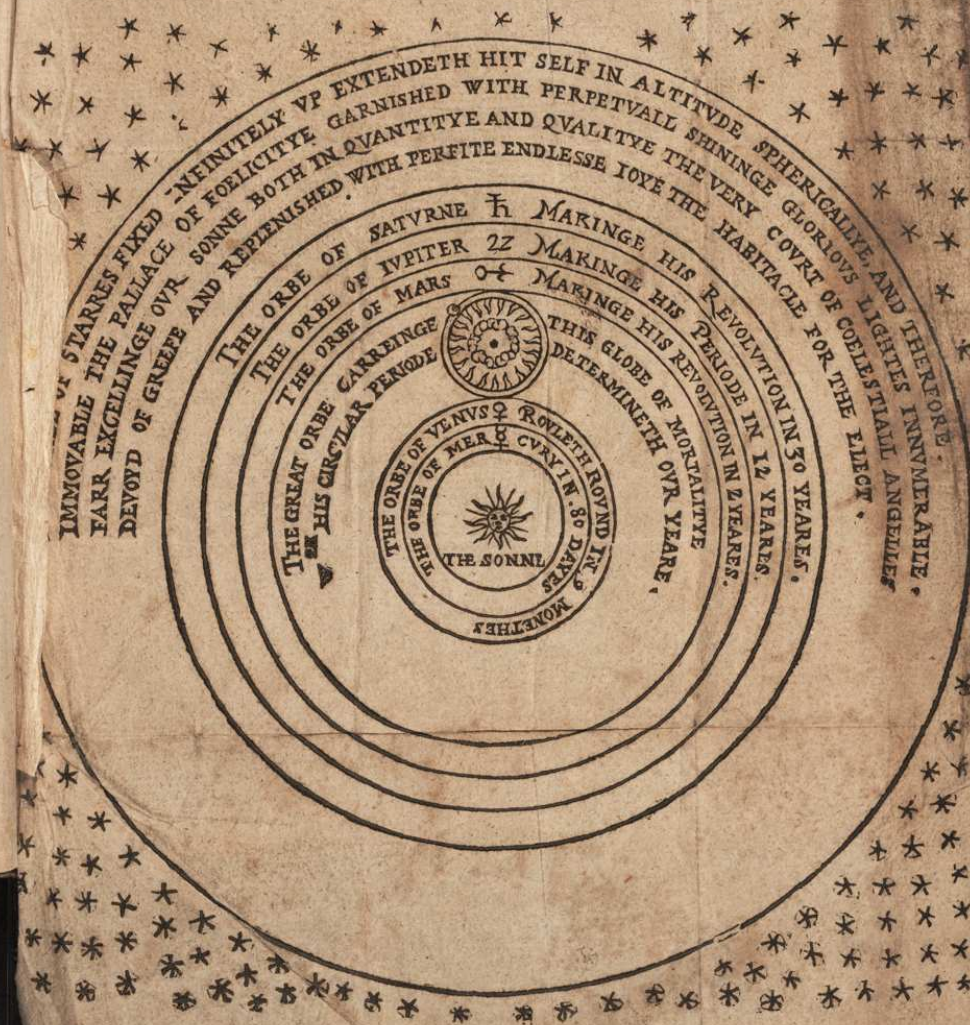 STARRES FIXED INFINITELY VP EXTENDETH HIT SELF IN ALTITVDE SPHERICALLYE, AND THERFORE
IMMOVABLE THE PALLACE OF FOELICITYE GARNISHED WITH PERPETVALL SHININGE GLORIOVS LIGHTES INNVMERABLE.
FARR EXCELLINGE OVR SONNE BOTH IN QVANTITYE AND QVALITYE THE VERY COVRT OF COELESTIALL ANGELLES
DEVOYD OF GREEFE AND REPLENISHED WITH PERFITE ENDLESSE IOYE THE HABITACLE FOR THE ELECT.
THE ORBE OF SATVRNE ♄ MAKINGE HIS REVOLVTION IN 30 YEARES.
THE ORBE OF IVPITER ♃ MAKINGE HIS PERIODE IN 12 YEARES.
THE ORBE OF MARS ♂ MAKINGE HIS REVOLVTION IN 2 YEARES.
THE GREAT ORBE CARREINGE THIS GLOBE OF MORTALITYE
HIS CIRCVLAR PERIODE DETERMINETH OVR YEARE.
THE ORBE OF VENVS ♀ ROVLETH ROVND IN .9. MONETHES
THE ORBE OF MER ☿ CVRY IN .80 DAYES
THE SONNE